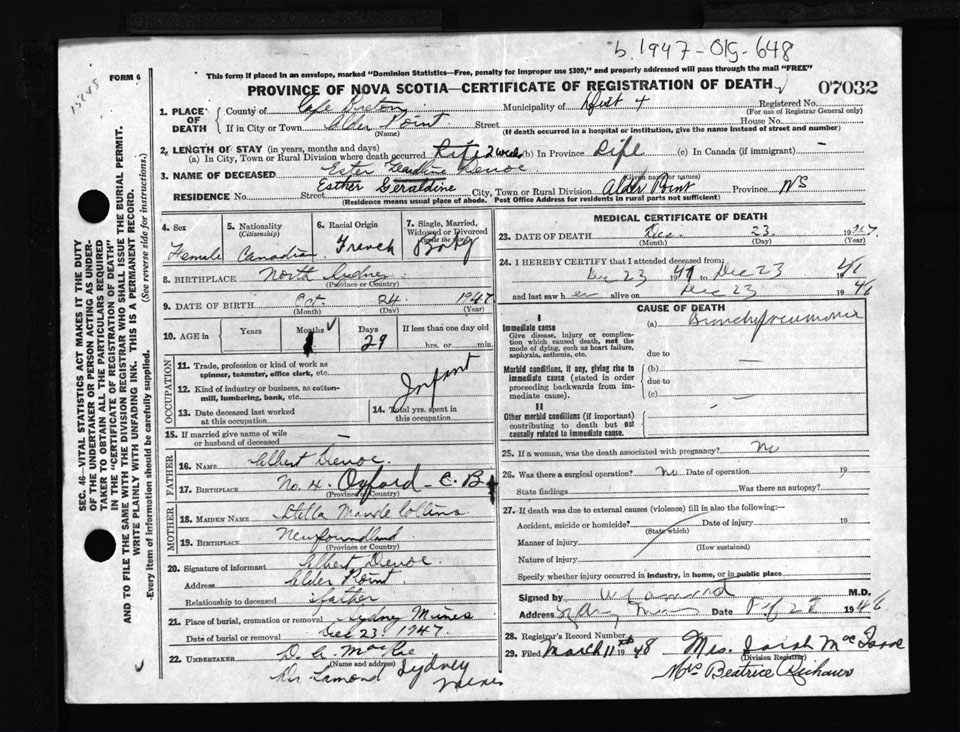 b. 1947-015-648
15245
FORM 6
This form if placed in an envelope, marked "Dominion Statistics—Free, penalty for improper use $300," and properly addressed will pass through the mail "FREE"
PROVINCE OF NOVA SCOTIA—CERTIFICATE OF REGISTRATION OF DEATH
07032
SEC. 46—VITAL STATISTICS ACT MAKES IT THE DUTY
OF THE UNDERTAKER OR PERSON ACTING AS UNDER-
TAKER TO OBTAIN ALL THE PARTICULARS REQUIRED
IN THE "CERTIFICATE OF REGISTRATION OF DEATH"
AND TO FILE THE SAME WITH THE DIVISION REGISTRAR WHO SHALL ISSUE THE BURIAL PERMIT.
WRITE PLAINLY WITH UNFADING INK. THIS IS A PERMANENT RECORD.
Every item of information should be carefully supplied. (See reverse side for instructions.)
1. PLACE OF DEATH
County of Cape Breton Municipality of Dist 4 Registered No.
(For use of Registrar General only)
If in City or Town Alder Point Street House No.
(Name) (If death occurred in a hospital or institution, give the name instead of street and number)
2. LENGTH OF STAY (in years, months and days)
(a) In City, Town or Rural Division where death occurred Life 2 weeks (b) In Province Life (c) In Canada (if immigrant)
3. NAME OF DECEASED Ester Geardline Denoc
(Given name or names)
Esther Geraldine
RESIDENCE No. Street City, Town or Rural Division Alder Point Province NS
(Residence means usual place of abode. Post Office Address for residents in rural parts not sufficient)
4. Sex
Female
5. Nationality
(Citizenship)
Canadian
6. Racial Origin
French
7. Single, Married,
Widowed or Divorced
Baby
8. BIRTHPLACE North Sydney
(Province or Country)
9. DATE OF BIRTH Oct. 24 1947
(Month) (Day) (Year)
10. AGE in Years Months Days If less than one day old
1 29 hrs. or min.
OCCUPATION
11. Trade, profession or kind of work as
spinner, teamster, office clerk, etc.
12. Kind of industry or business, as cotton-
mill, lumbering, bank, etc.
Infant
13. Date deceased last worked
at this occupation
14. Total yrs. spent in
this occupation
15. If married give name of wife
or husband of deceased —
FATHER
16. NAME Albert Denoc.
17. BIRTHPLACE No. 4. Oxford - C. B.
(Province or Country)
MOTHER
18. MAIDEN NAME Stella Maude Collins
19. BIRTHPLACE Newfoundland
(Province or Country)
20. Signature of informant Albert Denoc.
Address Alder Point
Relationship to deceased father
21. Place of burial, cremation or removal Sydney Mines
Date of burial or removal Dec 23, 1947.
22. UNDERTAKER D. A. MacRae
(Name and address)
Sydney
Mines
MEDICAL CERTIFICATE OF DEATH
23. DATE OF DEATH Dec. 23. 1947.
(Month) (Day) (Year)
24. I HEREBY CERTIFY that I attended deceased from:
Dec 23 1947 to Dec 23 1947
and last saw her alive on Dec 23 1946
CAUSE OF DEATH
I
Immediate cause
Give disease, injury or complica-
tion which caused death, not the
mode of dying, such as heart failure,
asphyxia, asthenia, etc.
(a) Bronchopneumonia
due to
Morbid conditions, if any, giving rise to
immediate cause (stated in order
proceeding backwards from im-
mediate cause).
(b) —
due to
(c) —
II
Other morbid conditions (if important)
contributing to death but not
causally related to immediate cause.
25. If a woman, was the death associated with pregnancy? No
26. Was there a surgical operation? No Date of operation 19
State findings Was there an autopsy?
27. If death was due to external causes (violence) fill in also the following:—
Accident, suicide or homicide? Date of injury 19
(State which)
Manner of injury
(How sustained)
Nature of injury
Specify whether injury occurred in industry, in home, or in public place
Signed by M.D.
Address Sydney Mines Date 1946
28. Registrar's Record Number
29. Filed March 11th 1948 Mrs. Sarah Mac Isaac
(Division Registrar)
Mrs Beatrice